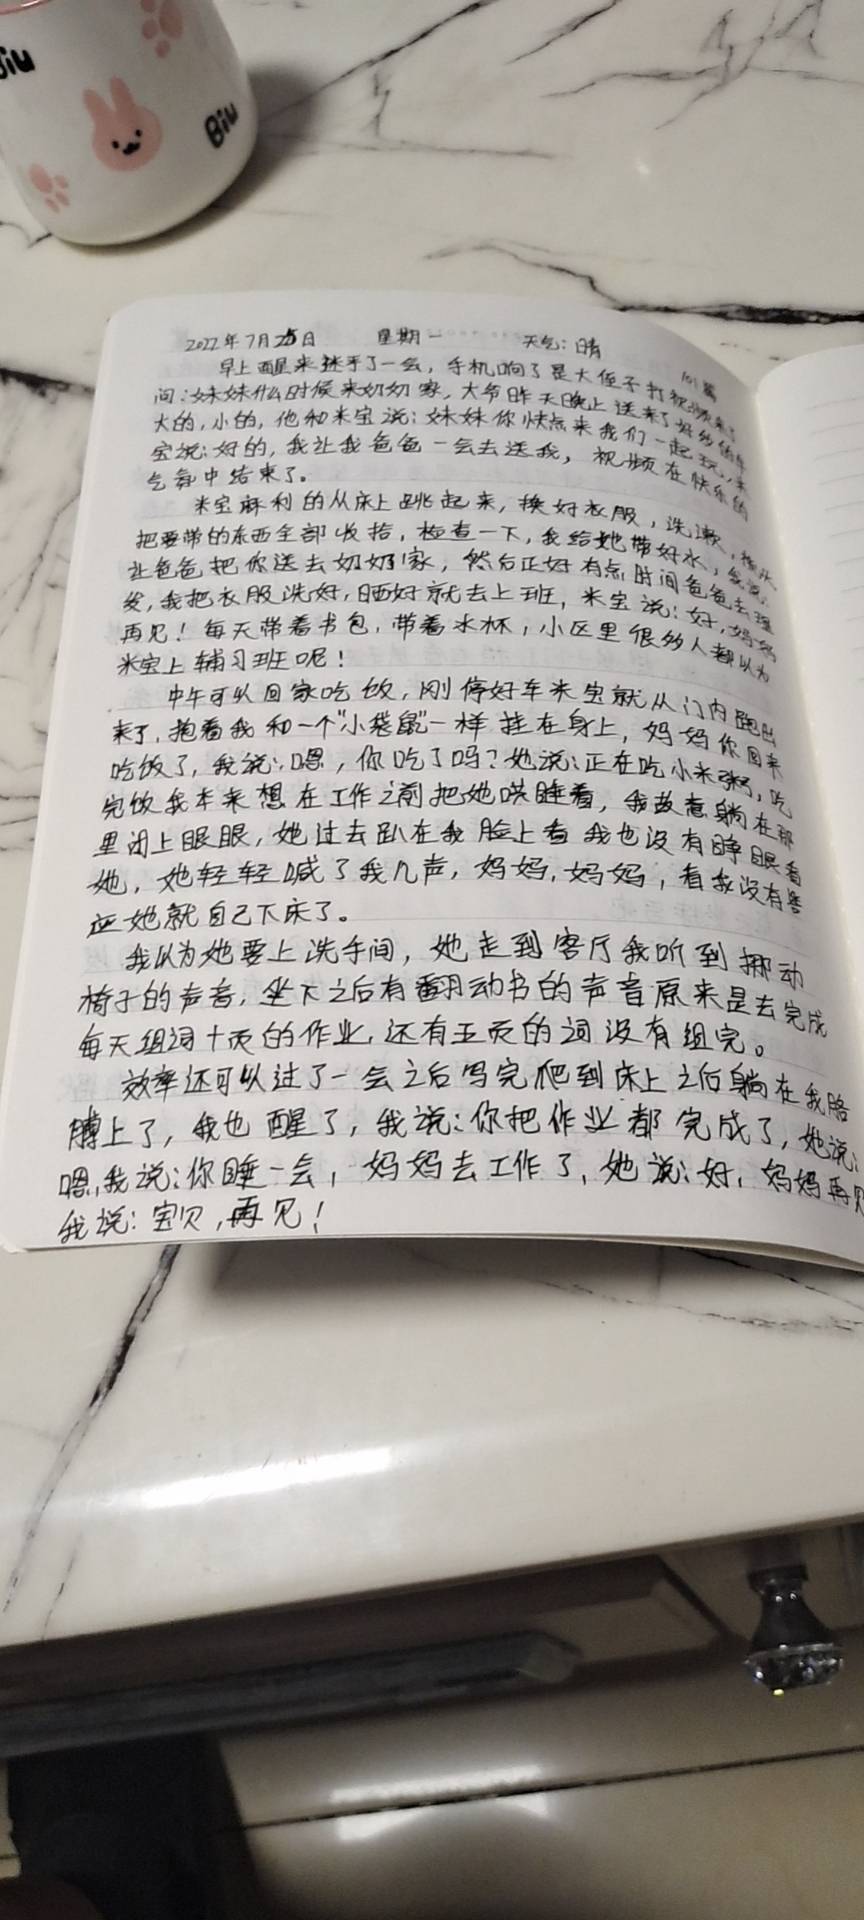 Biu
Biu
2022年7月25日 星期一 天气:晴
101篇
早上醒来迷乎了一会,手机响了是大侄子打视频来了
问:妹妹什么时候来奶奶家,大爷昨天晚上送来了好多的
大的,小的,他和米宝说:妹妹你快点来我们一起玩,米
宝说:好的,我让我爸爸一会去送我,视频在快乐的
气氛中结束了。
米宝麻利的从床上跳起来,换好衣服,洗漱,梳头,
把要带的东西全部收拾,检查一下,我给她带好水,我说:
让爸爸把你送去奶奶家,然后正好有点时间爸爸去理
发,我把衣服洗好,晒好就去上班,米宝说:好,妈妈
再见!每天带着书包,带着水杯,小区里很多人都以为
米宝上辅习班呢!
中午可以回家吃饭,刚停好车米宝就从门内跑出
来了,抱着我和一个“小袋鼠”一样挂在身上,妈妈你回来
吃饭了,我说:嗯,你吃了吗?她说:正在吃小米粥,吃
完饭我本来想在工作之前把她哄睡着,我故意躺在那
里闭上眼眼,她过去趴在我脸上看我也没有睁眼看
她,她轻轻喊了我几声,妈妈,妈妈,看我没有答
应她就自己下床了。
我以为她要上洗手间,她走到客厅我听到挪动
椅子的声音,坐下之后有翻动书的声音原来是去完成
每天组词十页的作业,还有五页的词没有组完。
效率还可以过了一会之后写完爬到床上之后躺在我胳
膊上了,我也醒了,我说:你把作业都完成了,她说:
嗯,我说:你睡一会,妈妈去工作了,她说:好,妈妈再见
我说:宝贝,再见!